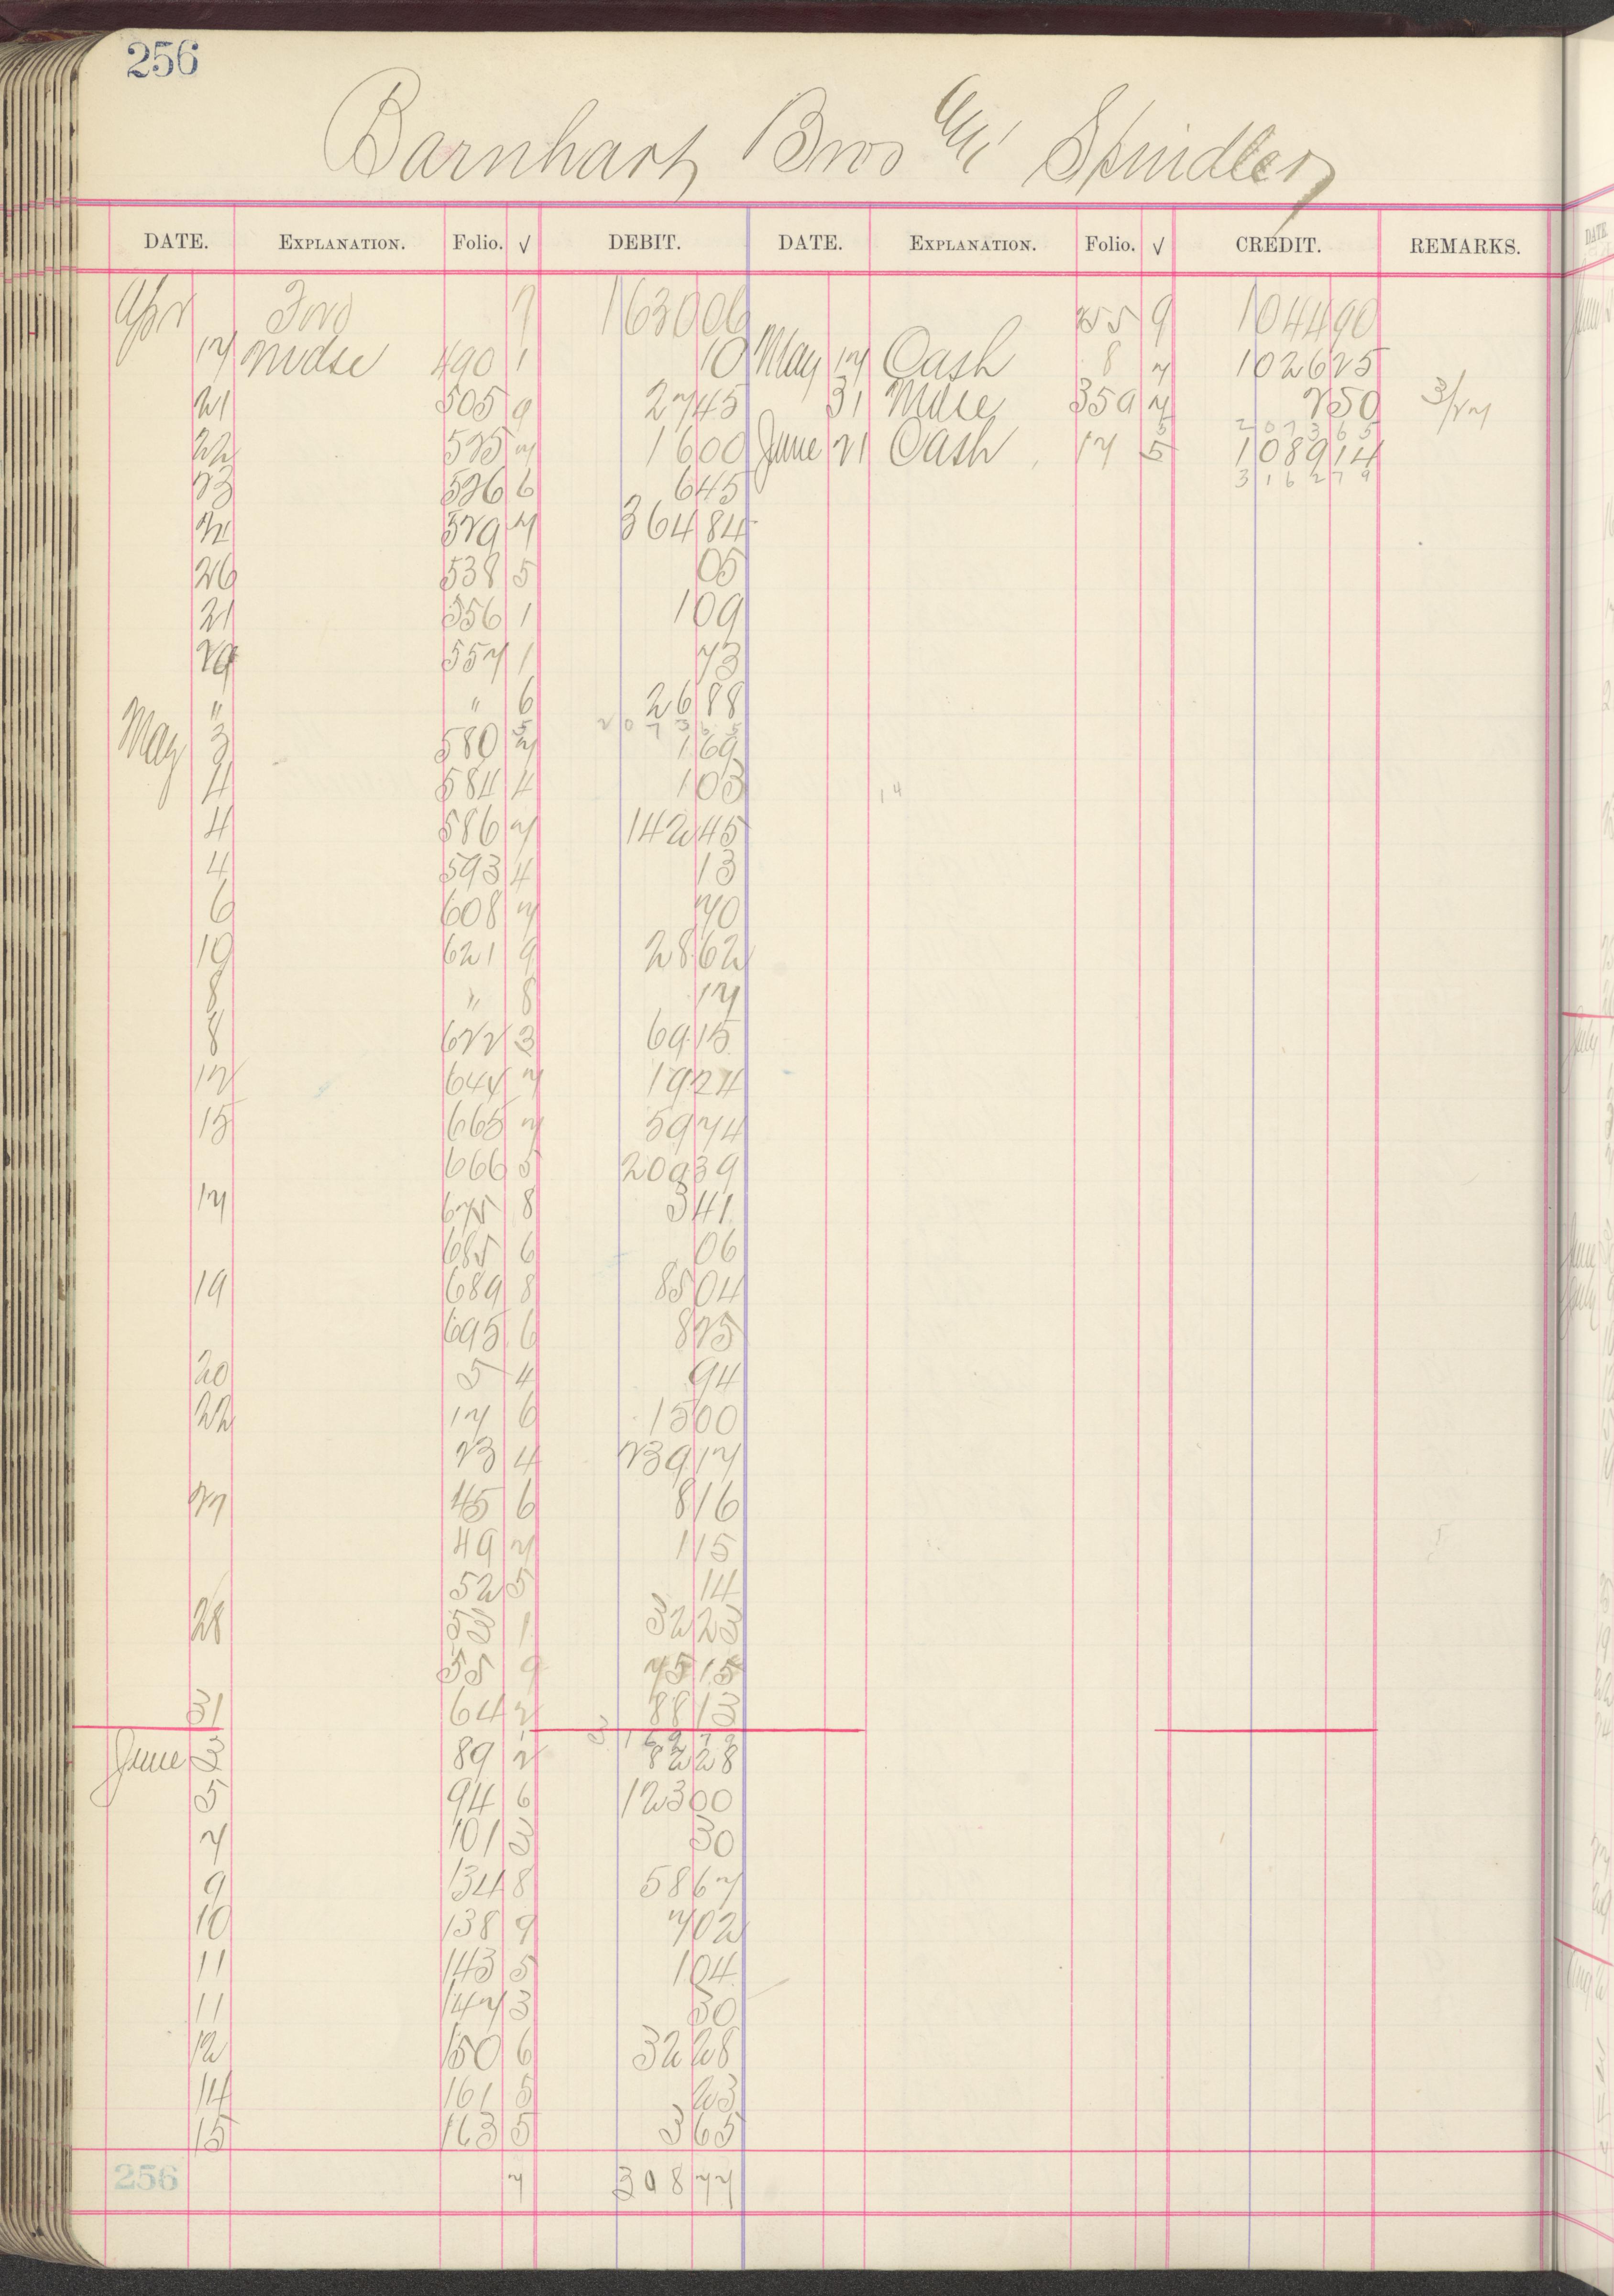 256
Barnhart Bros & Spindler
DATE. EXPLANATION. Folio. √ DEBIT. DATE. EXPLANATION. Folio. √ CREDIT. REMARKS.
Apr Ford 7 1630 06 255 9 1044 90
17 mdse 490 1 10 May 17 Cash 8 7 1026 25
21 505 9 27 45 31 Mdse 359 7 2 50 3/27
2 0 7 3 6 5
22 525 7 16 00 June 21 Cash 17 5 1089 14
23 526 6 6 45 3 1 6 2 7 9
529 7 364 84
26 538 5 05
21 556 1 1 09
29 557 1 73
" " 6 26 88
2 0 7 3 6 5
May 3 580 7 1 69
4 584 4 1 03
14
4 586 7 142 45
4 593 4 13
6 608 7 70
10 621 9 28 62
8 " 8 17
8 622 3 69 15
12 644 7 19 24
15 665 7 59 74
666 5 209 39
17 675 8 3 41
685 6 06
19 689 8 85 04
695 6 8 25
20 5 4 94
22 17 6 15 00
23 4 239 17
27 45 6 8 16
49 7 1 15
52 5 14
28 53 1 32 23
55 9 75 15
31 64 2 88 13
June 3 89 2 82 28
5 94 6 123 00
7 101 3 30
9 134 8 58 67
10 138 9 7 02
11 143 5 1 04
11 147 3 30
12 150 6 32 28
14 161 5 23
15 163 5 3 65
256 7 308 77